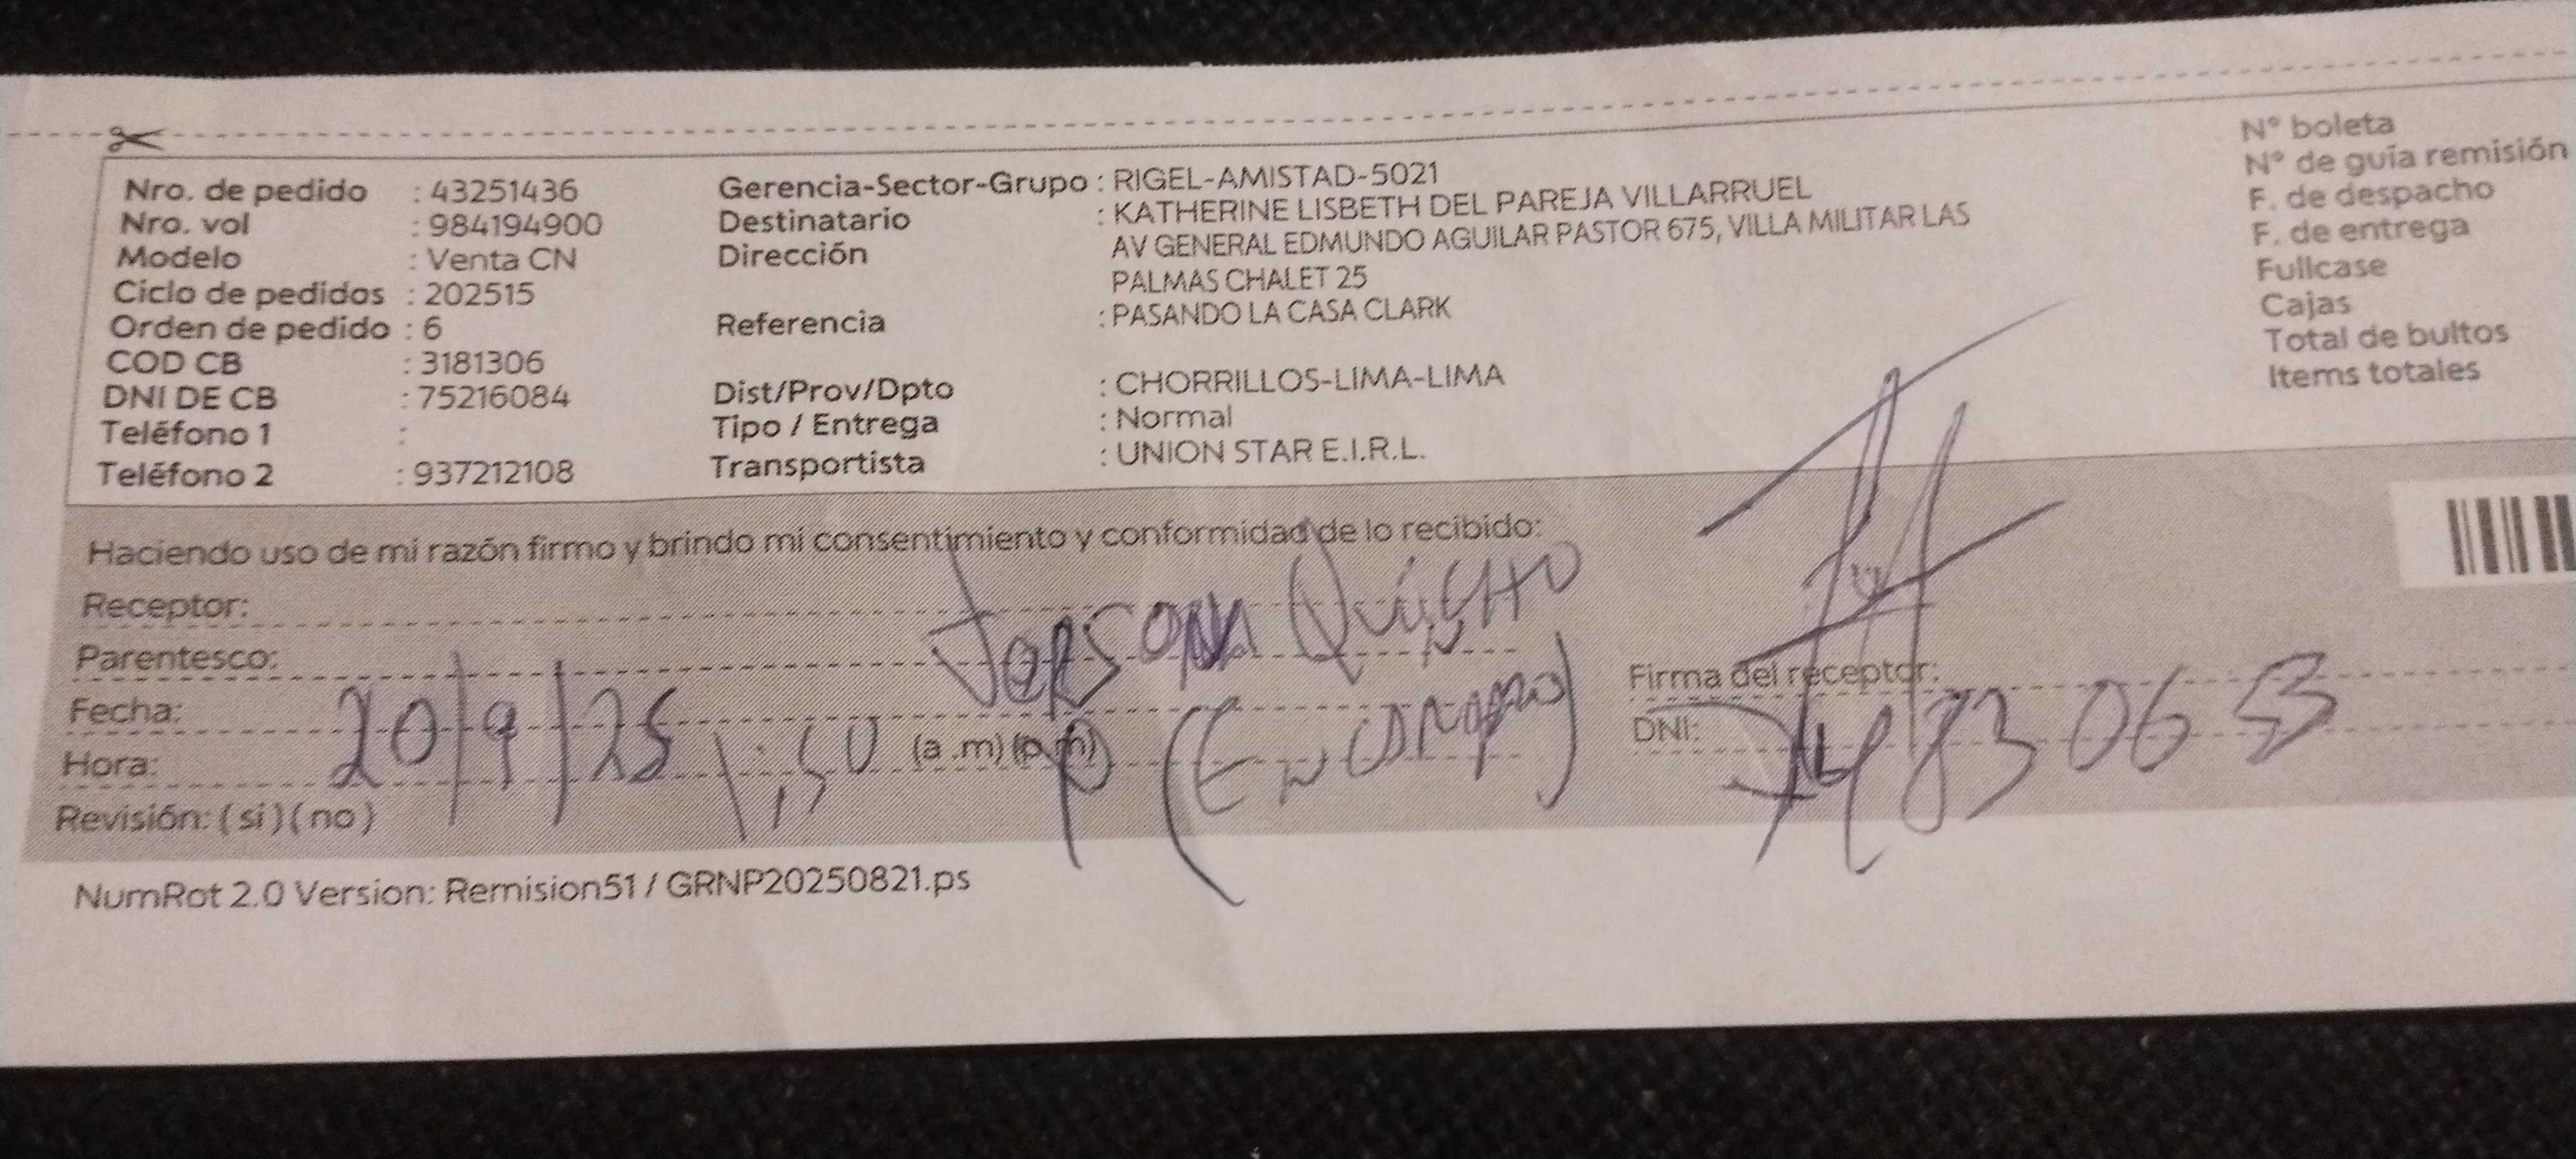 Nro. de pedido : 43251436
Nro. vol : 984194900
Modelo : Venta CN
Ciclo de pedidos : 202515
Orden de pedido : 6
COD CB : 3181306
DNI DE CB : 75216084
Teléfono 1 :
Teléfono 2 : 937212108
Gerencia-Sector-Grupo : RIGEL-AMISTAD-5021
Destinatario : KATHERINE LISBETH DEL PAREJA VILLARRUEL
Dirección AV GENERAL EDMUNDO AGUILAR PASTOR 675, VILLA MILITAR LAS
PALMAS CHALET 25
Referencia : PASANDO LA CASA CLARK
Dist/Prov/Dpto : CHORRILLOS-LIMA-LIMA
Tipo / Entrega : Normal
Transportista : UNION STAR E.I.R.L.
N° boleta
N° de guía remisión
F. de despacho
F. de entrega
Fullcase
Cajas
Total de bultos
Items totales
Haciendo uso de mi razón firmo y brindo mi consentimiento y conformidad de lo recibido:
Receptor:
Parentesco:
Fecha: 20/9/25
Hora: 1:50 (a .m) (p.m)
Revisión: ( si ) ( no )
Quicho
Firma del receptor:
DNI:
NumRot 2.0 Version: Remision51 / GRNP20250821.ps